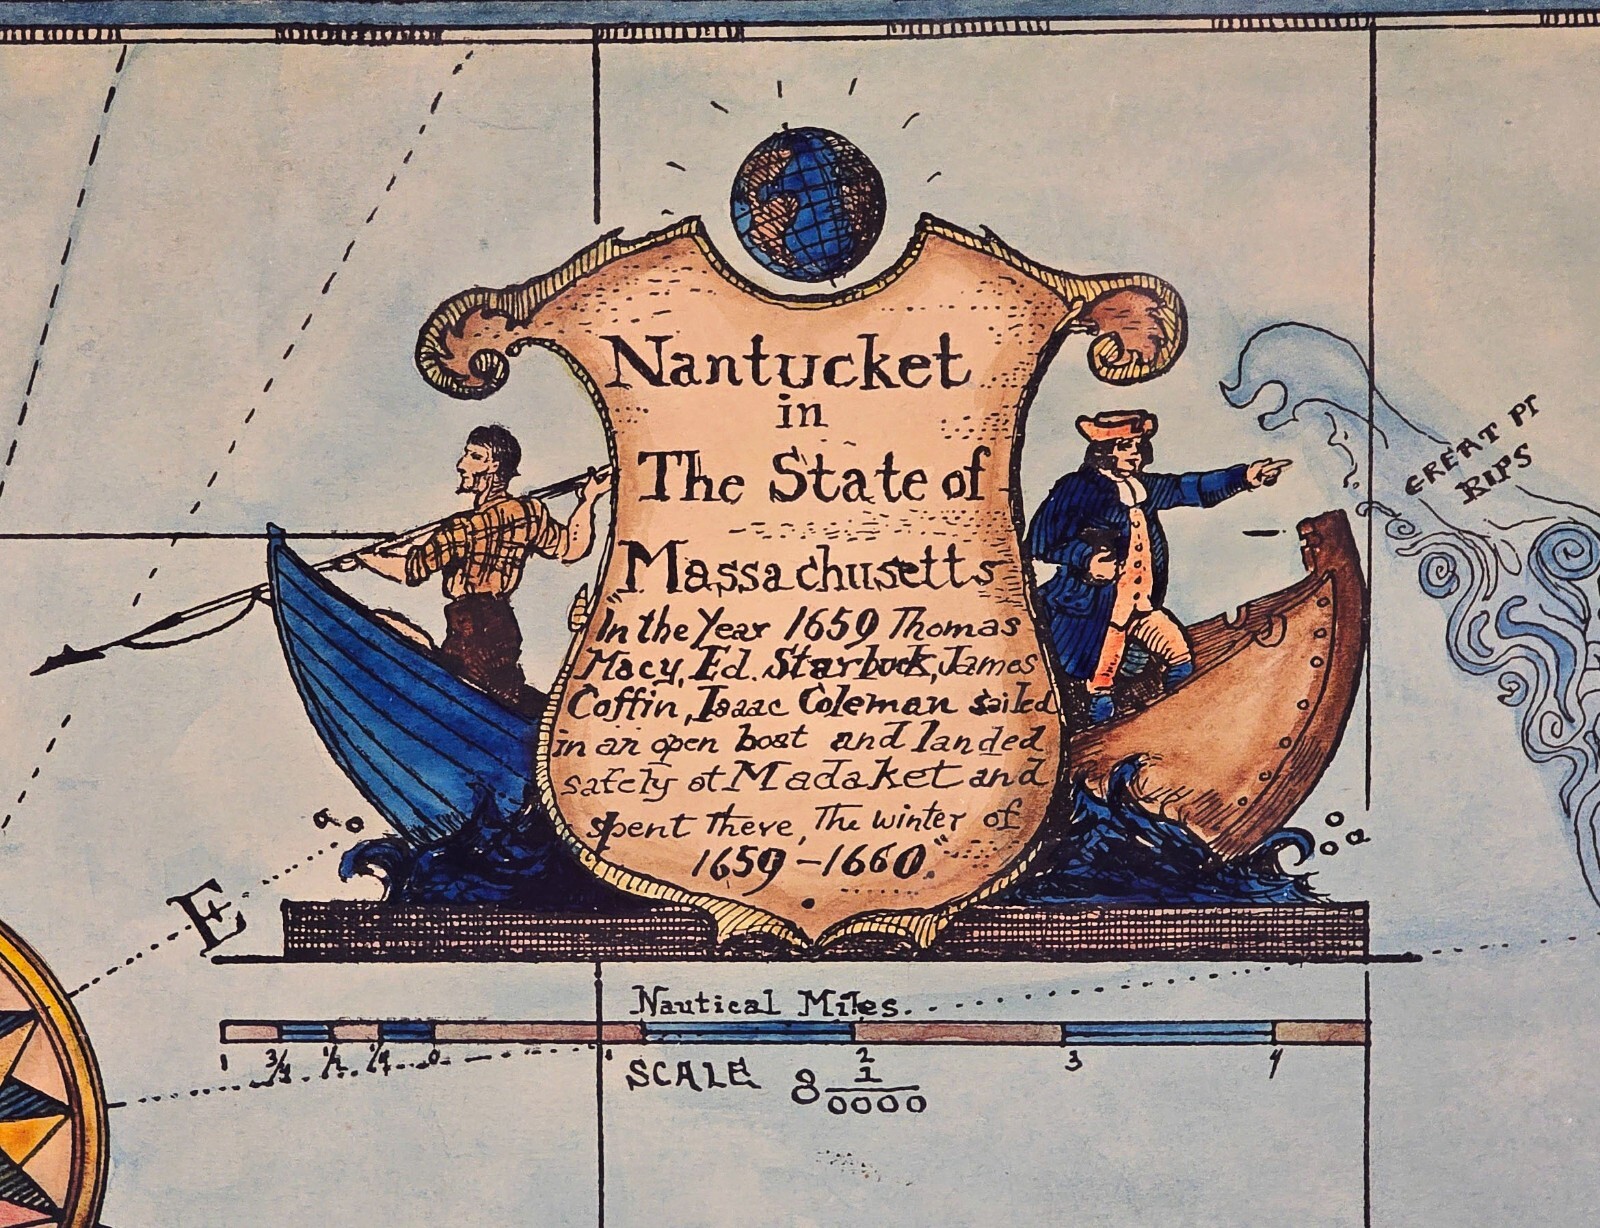 Nantucket
in
The State of
Massachusetts
"In the Year 1659 Thomas
Macy, Ed. Starbuck, James
Coffin, Isaac Coleman sailed
in an open boat and landed
safely at Madaket and
spent there, The winter of
1659 - 1660."
GREAT PT
RIPS
E
Nautical Miles.
1 3/4 1/2 1/4 0 1 2 3 4
SCALE 8 1/0000